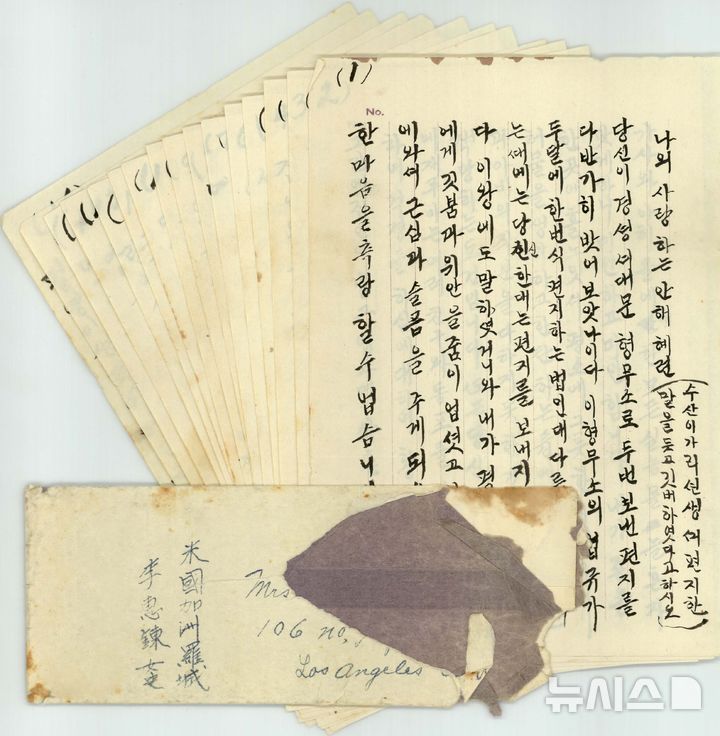 (1)
No.
나의 사랑하는 안해 혜련
(수산이가 리선생께 편지한
말을 듯고 깃버하엿다고 하시오)
당신이 경성 서대문 형무소로 두번 보낸 편지를
다 반가히 밧어 보앗나이다 이 형무소의 법규가
두달에 한번식 편지하는 법인대 다른
는 때에는 당신한대는 편지를 보내지
다 이왕에도 말하엿거니와 내가 평
에게 깃붐과 위안을 줌이 업셧고
에 와셔 근심과 슬픔을 주게 되
한 마음을 측량할 수 업슴니
米國加洲羅城
李惠鍊 女史
Mrs
106 no.
Los Angeles
뉴시스